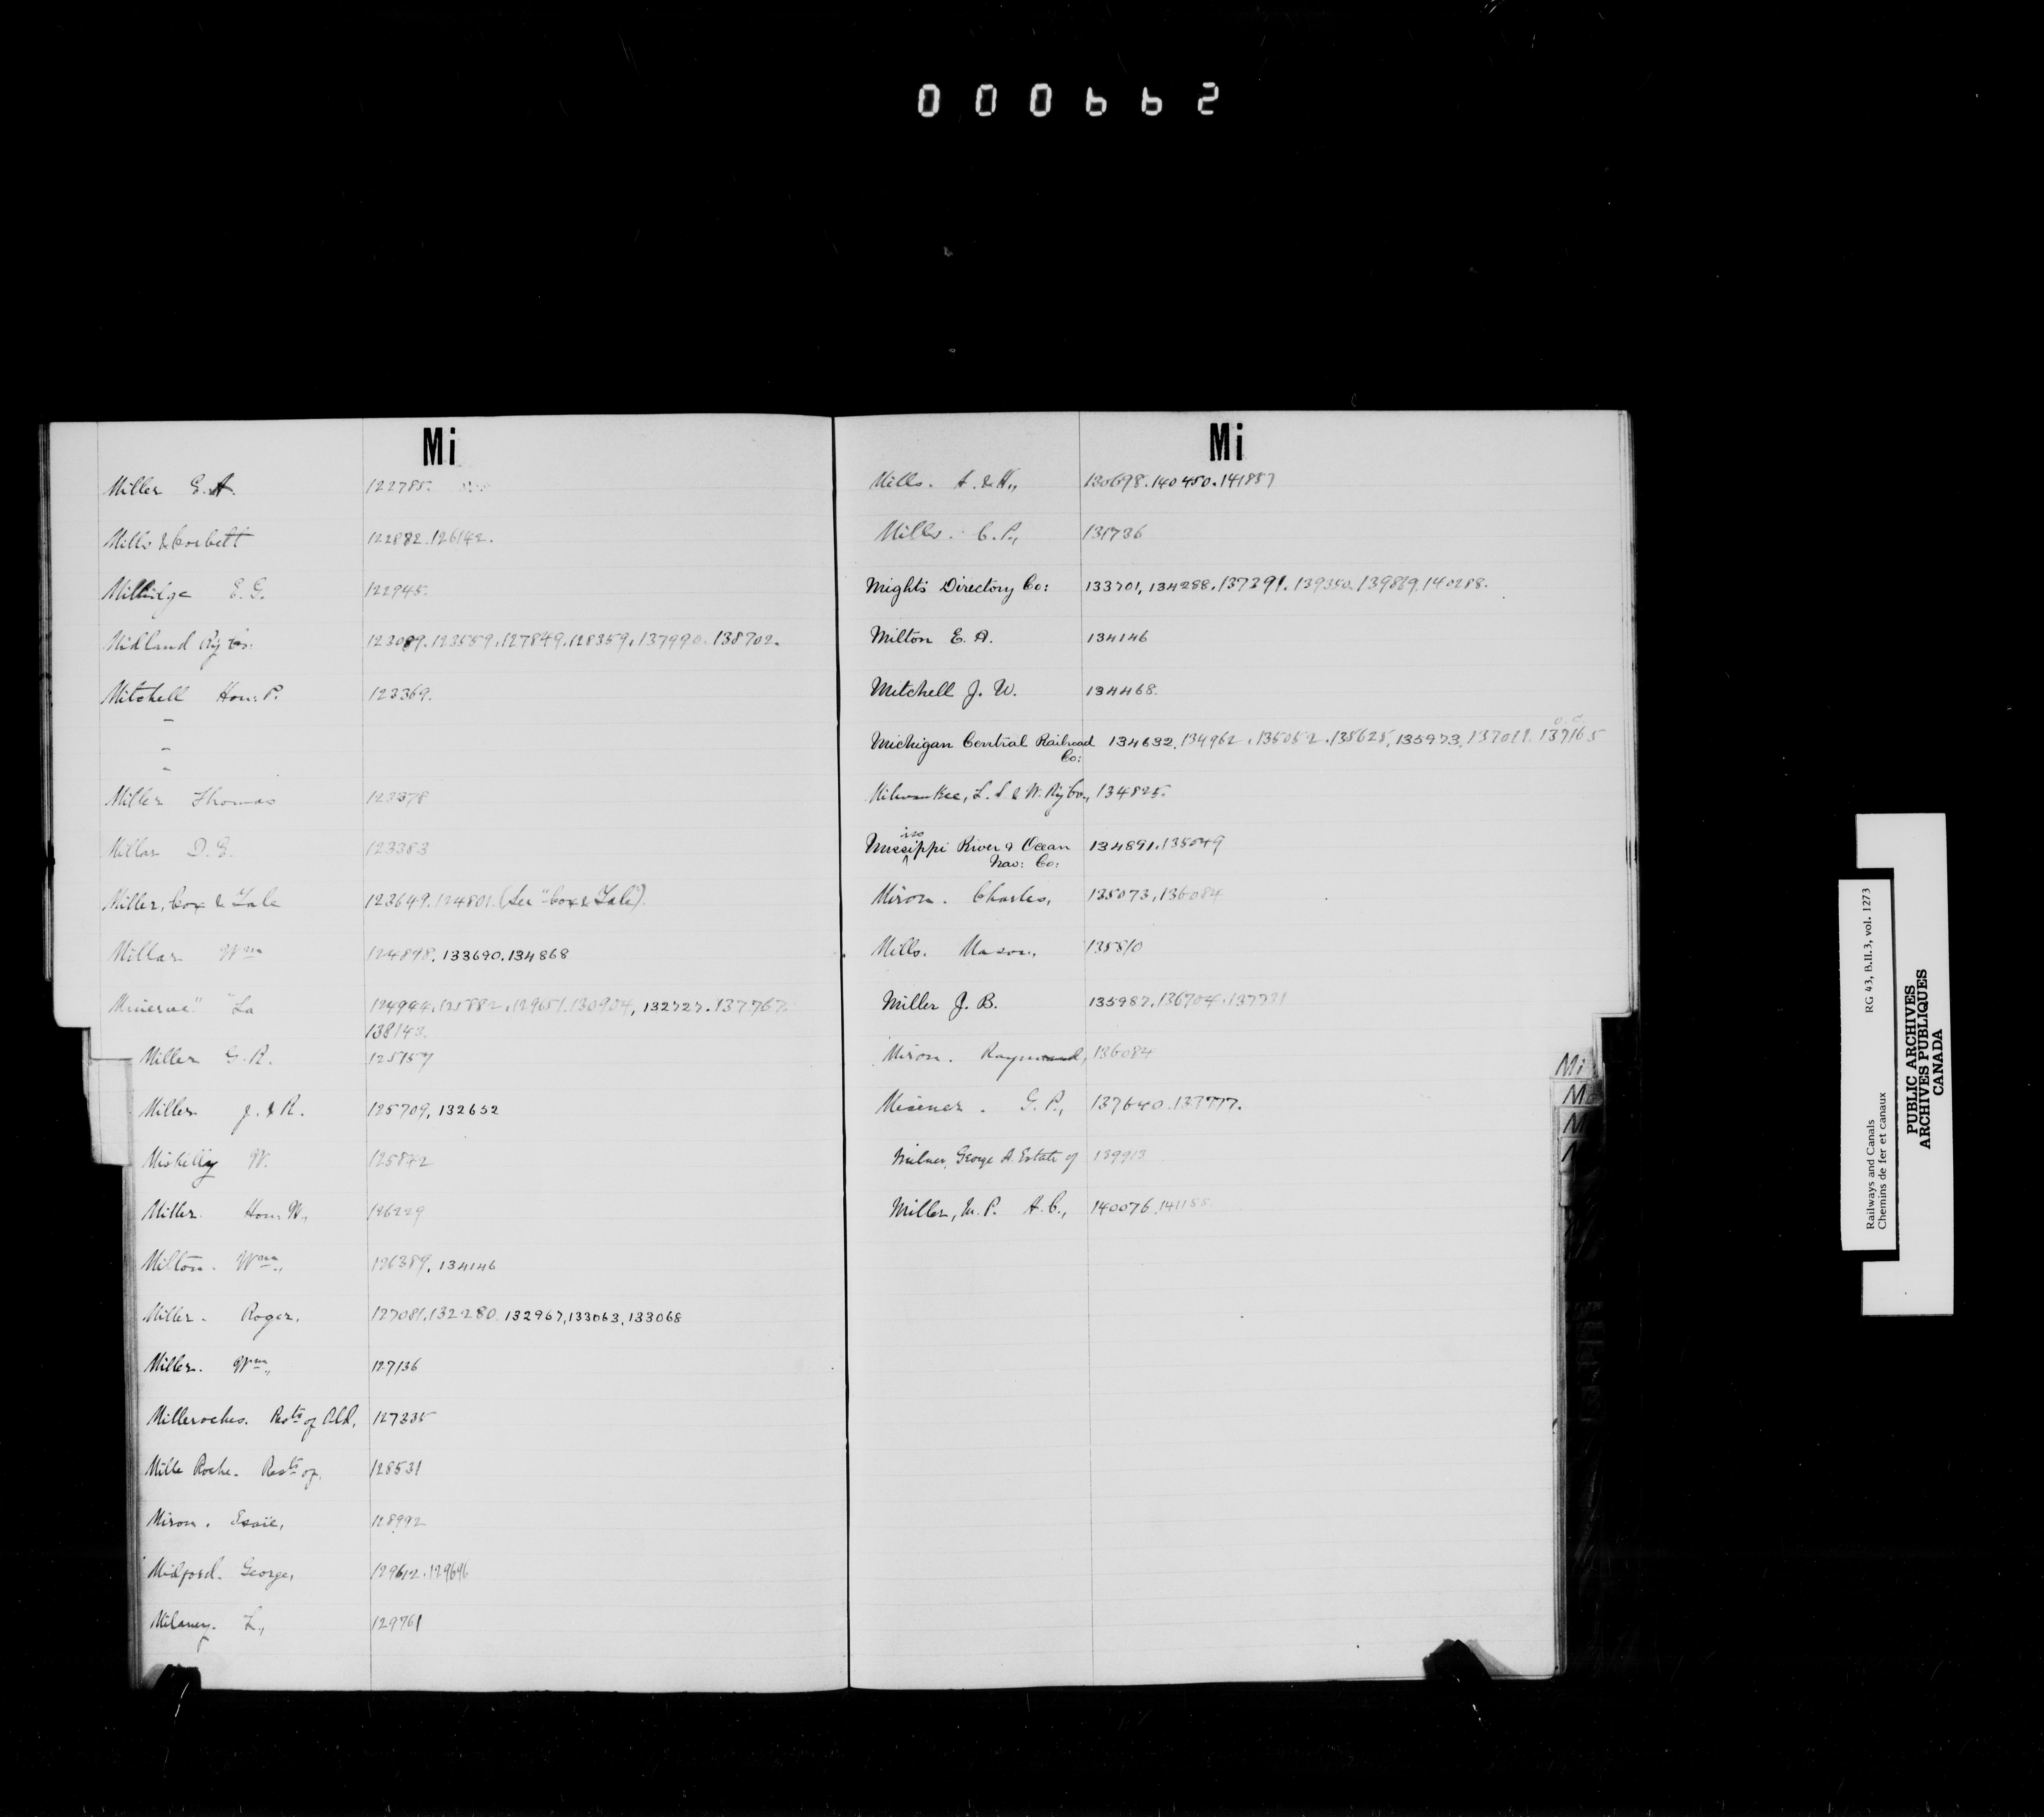 000662
Mi
Miller E. A. 122785.
Mills & Corbett 122882. 126142.
Millidge E. G. 122945.
Midland Ry Co. 123089. 123559. 127849. 128359. 137990. 138702.
Mitchell Hon. P. 123369.
"
"
"
Miller Thomas 123378
Millar D. G. 123383
Miller, Cox & Yale 123649. 124801. (See "Cox & Yale")
Millar Wm 124898. 133690. 134868
Minerve" "La 124944. 125882. 129651. 130904, 132727. 137767.
138143.
Miller G. R. 125157
Miller J. & R. 125709, 132652
Miskelly W. 125842
Miller Hon. W., 126229
Milton. Wm., 126389, 134146
Miller. Roger, 127081. 132280. 132967, 133063, 133068
Miller. Wm., 127136
Milleroches. Resis of Old, 127335
Mille Roche. Resis of, 128531
Miron. Esaïe, 128992
Midford. George, 129612. 129696
Milaney. L., 129761
Mi
Mills. A. & H., 130698. 140450. 141887
Mills. C. P., 131736
Might's Directory Co: 133701, 134288. 137391. 139350. 139869. 140288.
Milton E. A. 134146
Mitchell J. W. 134468.
Michigan Central Railroad 134632, 134962. 135052. 135625, 135973, 137011. 137165
Co:
Milwaukee, L. S & W. Ry Co., 134825.
iss
Missippi River & Ocean 134891. 135049
Nav: Co:
Miron. Charles, 135073, 136084
Mills. Mason, 135510
Miller J. B. 135987. 136704. 137731
Miron. Raymond, 136084
Misener. G. P., 137640. 137717.
Milner, George A. Estate of 139913
Miller, M. P. A. C., 140076. 141188
Mi
Railways and Canals RG 43, B.II.3, vol. 1273
Chemins de fer et canaux
PUBLIC ARCHIVES
ARCHIVES PUBLIQUES
CANADA